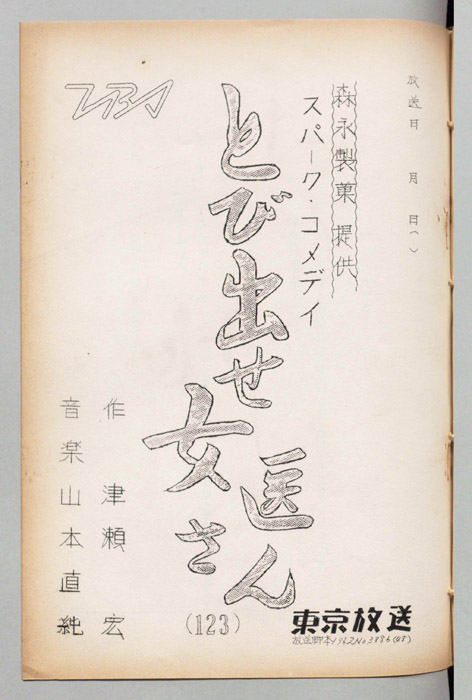 放送日　月　日（　）
森永製菓 提供
スパーク・コメデイ
とび出せ
女医さん
(123)
作　津瀬　宏
音楽 山本直純
TBS
東京放送